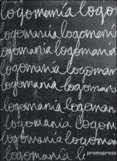 logomania logo
logomania logomania
logomania logomania
logomania logoman
logomania logoman
logomania logoman
logomania logoman
logomania logoman
logomania logoman
logomania logoman
promopress